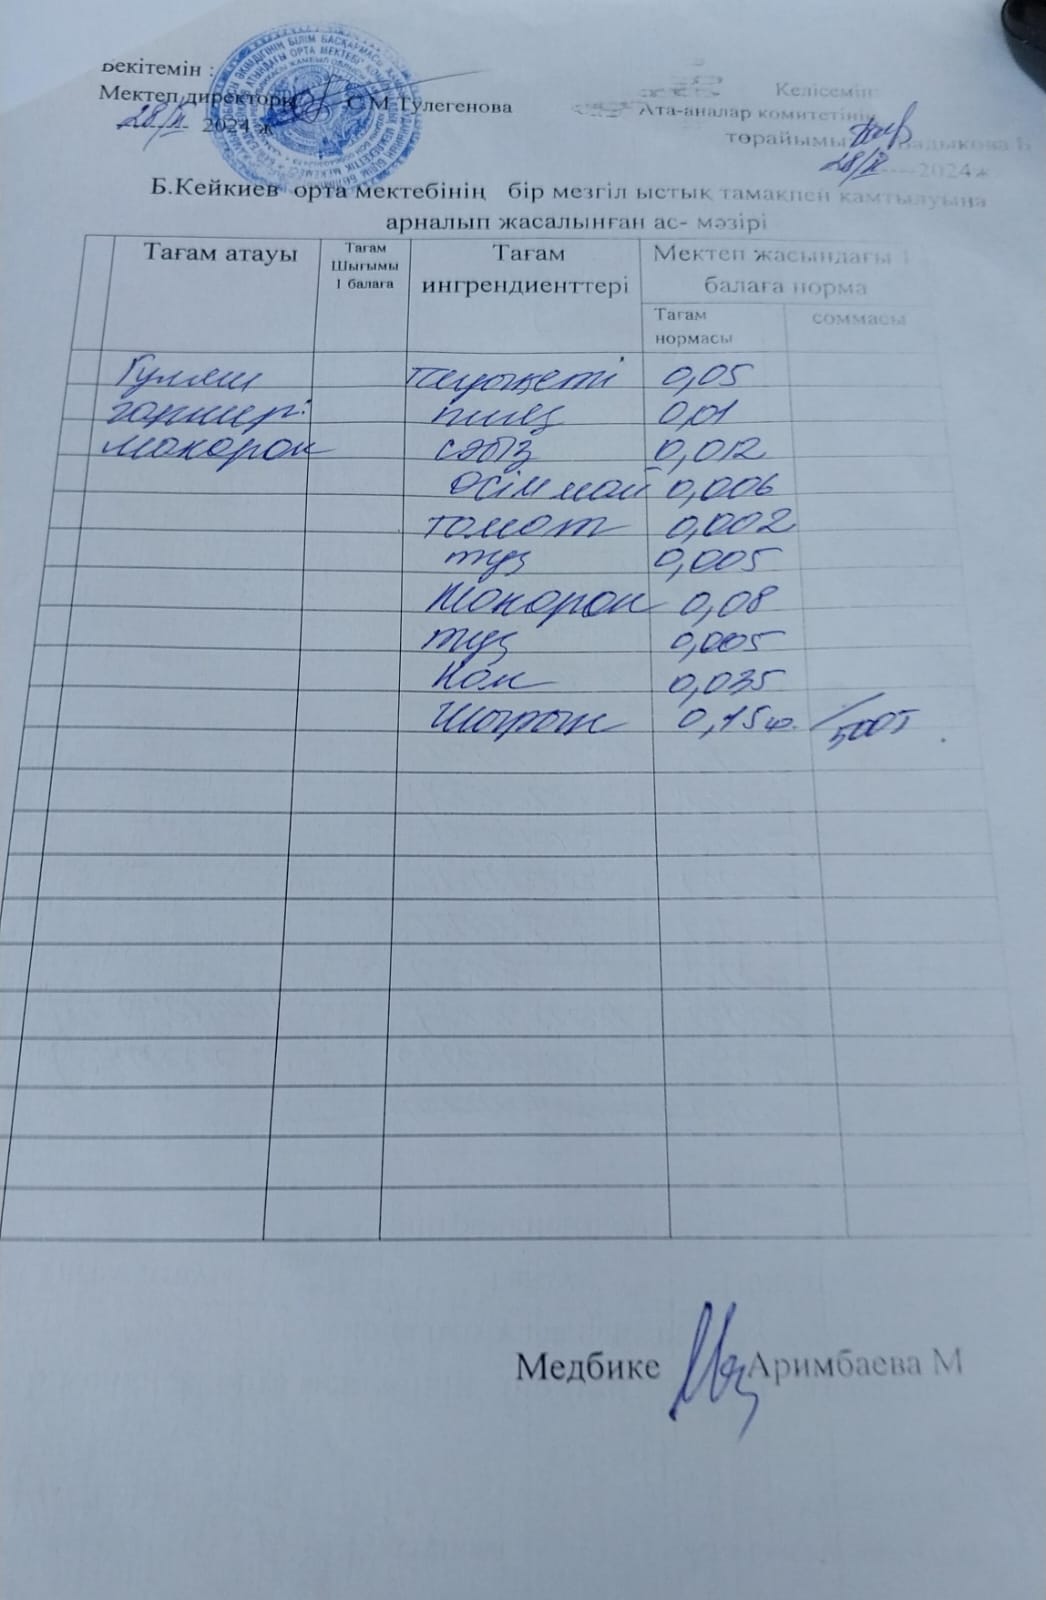 Бекітемін :
Мектеп директоры С.М Тулегенова
28/ 2024 ж
Келісемін
Ата-аналар комитетінің
төрайымы
28/ 2024 ж
Б.Кейкиев орта мектебінің бір мезгіл ыстық тамақпен қамтылуына
арналып жасалынған ас- мәзірі
Тағам атауы
Тағам
Шығымы
1 балаға
Тағам
ингрендиенттері
Мектеп жасындағы 1
балаға норма
Тағам
нормасы
соммасы
Гуляш тауық еті 0,05
гарнир: пияз 0,01
макарон сәбіз 0,012
өсім май 0,006
томат 0,002
тұз 0,005
Макарон 0,08
тұз 0,005
Нан 0,035
Шырын 0,15 /500т
Медбике Аримбаева М